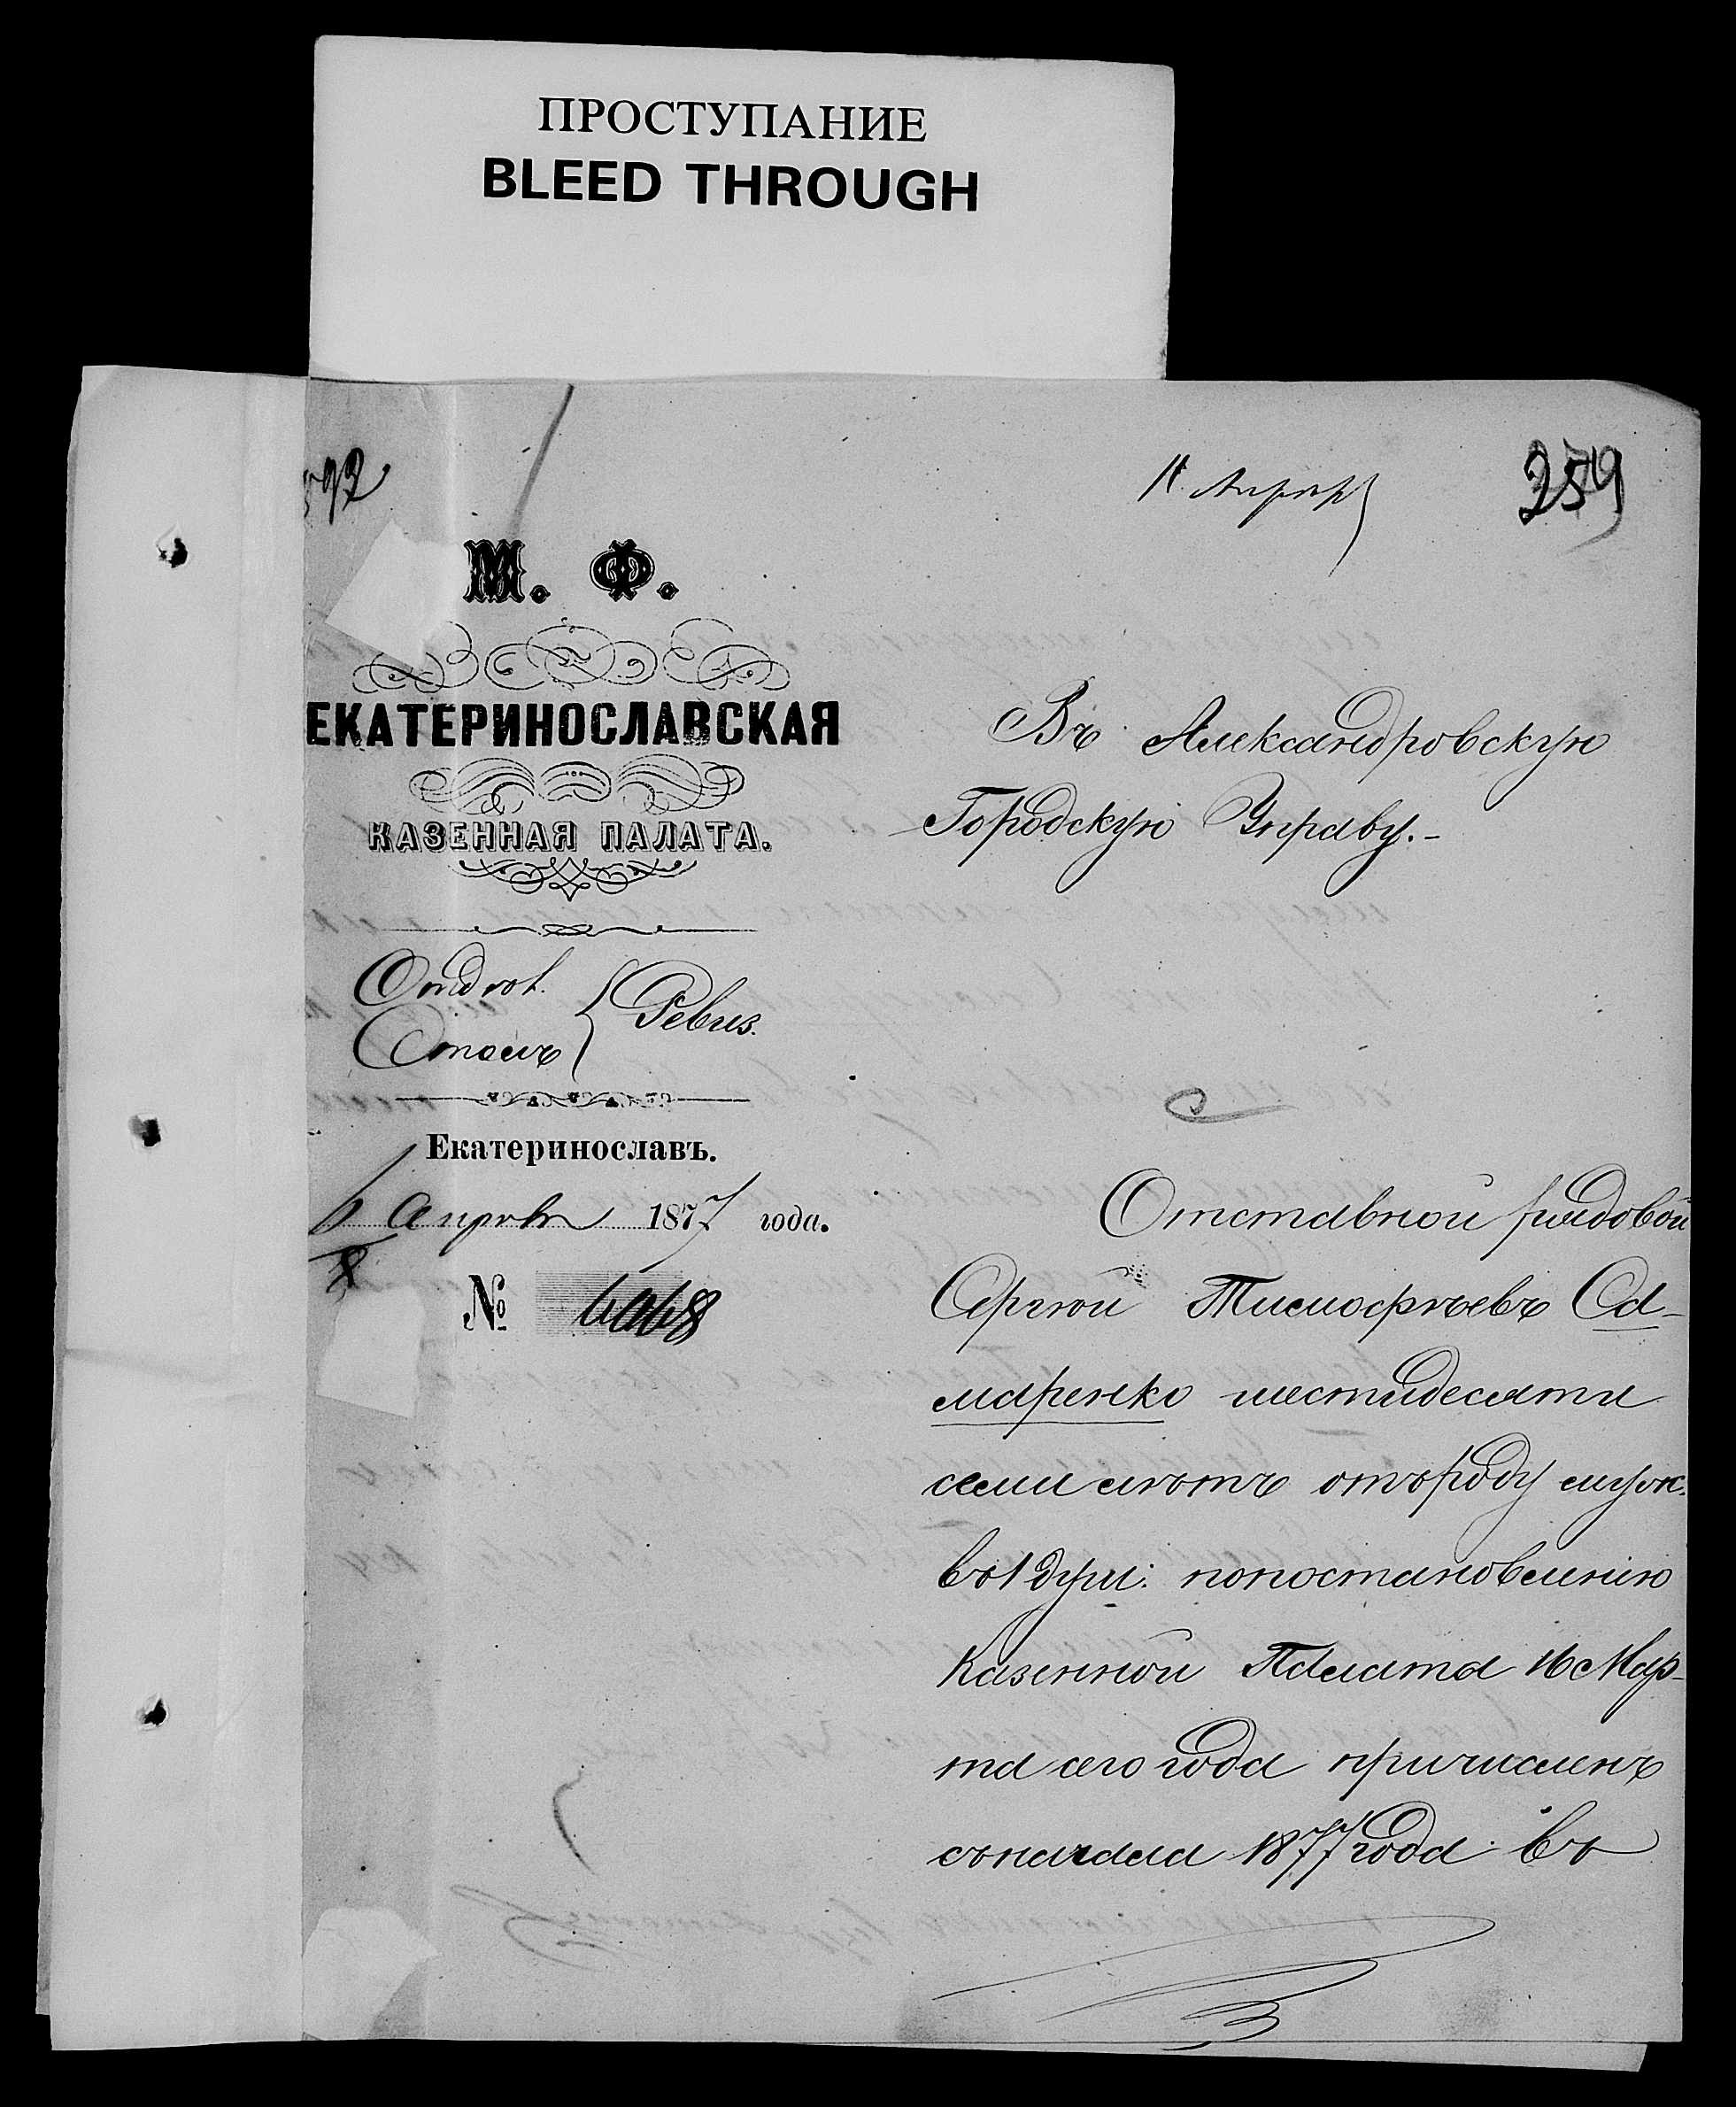 ПРОСТУПАНИЕ
BLEED THROUGH
592
11 Апрѣл
259
М. Ф.
ЕКАТЕРИНОСЛАВСКАЯ
КАЗЕННАЯ ПАЛАТА.
Отдѣл.
Столъ
Ревиз.
Екатеринославъ.
Апрѣля 1877 года.
№
Въ Александровскую
Городскую Управу.-
Отставной рядовой
Сергѣй Тимофѣевъ Са-
маренко шестидесяти
семи лѣтъ отъроду муж.
въ 1 душ: попостановленію
Казенной Палаты 16 Мар-
та сего года причисленъ
съначала 1877 года въ